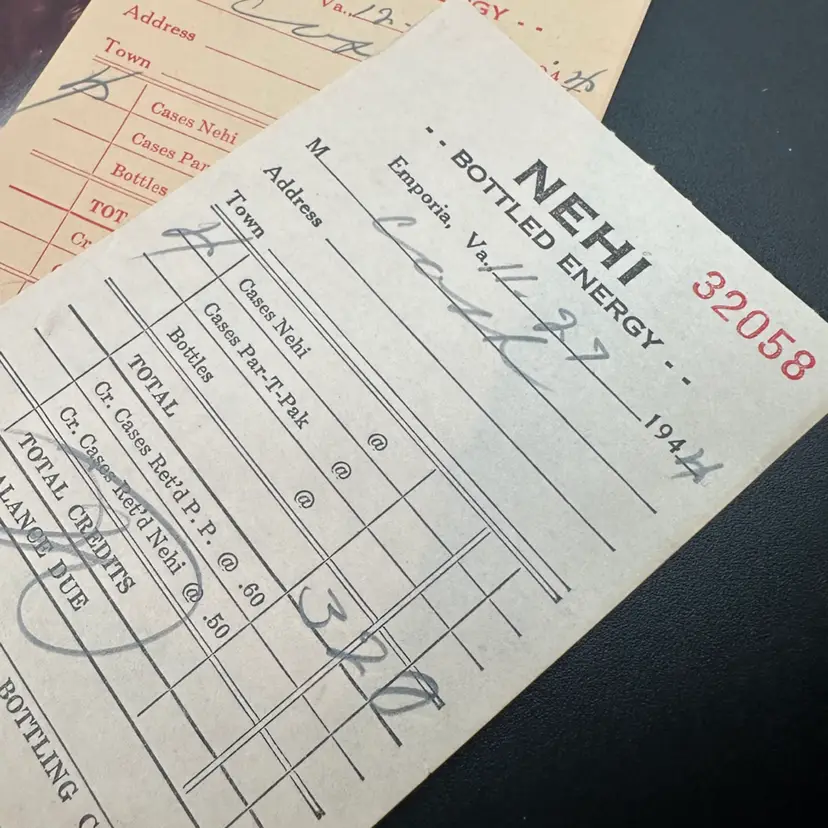 NEHI
- - BOTTLED ENERGY - -
32058
Emporia, Va. 11-27 1944
M Cash
Address
Town
4 Cases Nehi @
Cases Par-T-Pak @
Bottles @
TOTAL 320
Cr. Cases Ret'd P. P. @ .60
Cr. Cases Ret'd Nehi @ .50
TOTAL CREDITS
ALANCE DUE
BOTTLING C
GY - -
Va. 12-
4
Address
Town
4 Cases Nehi
Cases Par
Bottles
TOT
Cr.